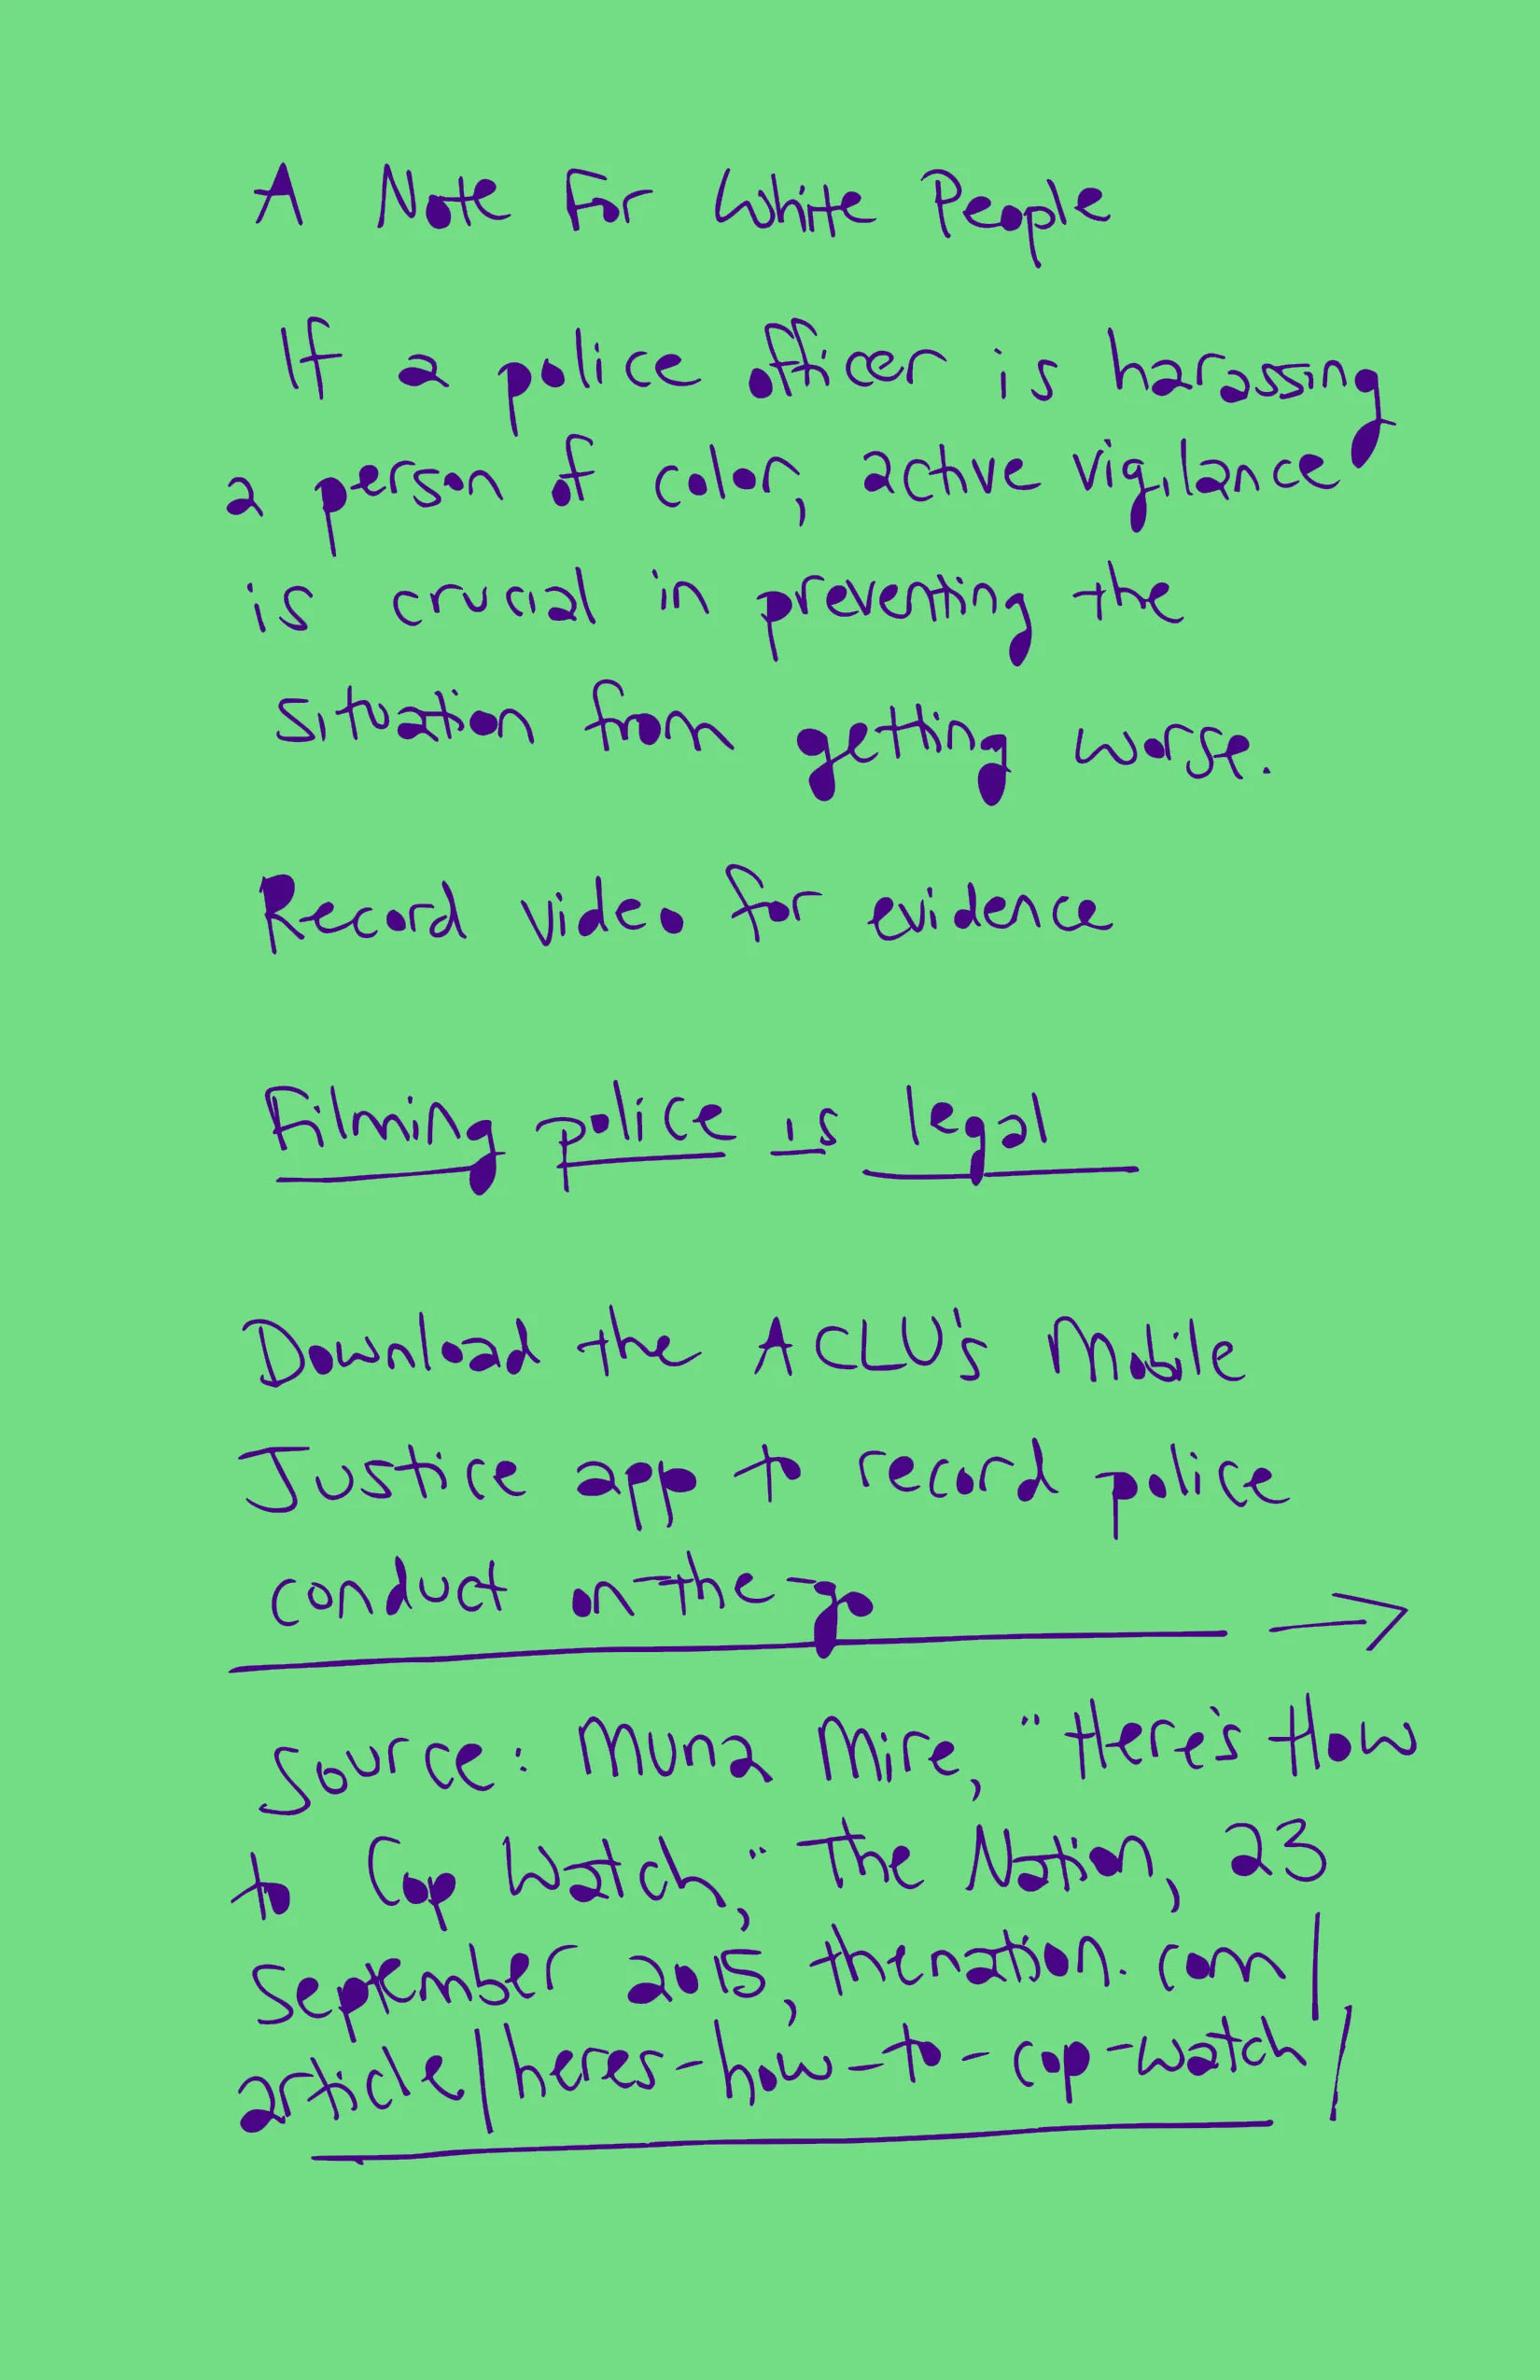 A Note For White People
If a police officer is harassing
a person of color, active vigilance
is crucial in preventing the
situation from getting worse.
Record video for evidence
Filming police is legal
Download the ACLU's Mobile
Justice app to record police
conduct on-the-go
→
Source: Muna Mire, "Here's How
to Cop Watch," The Nation, 23
September 2015, thenation.com/
article/heres-how-to-cop-watch/